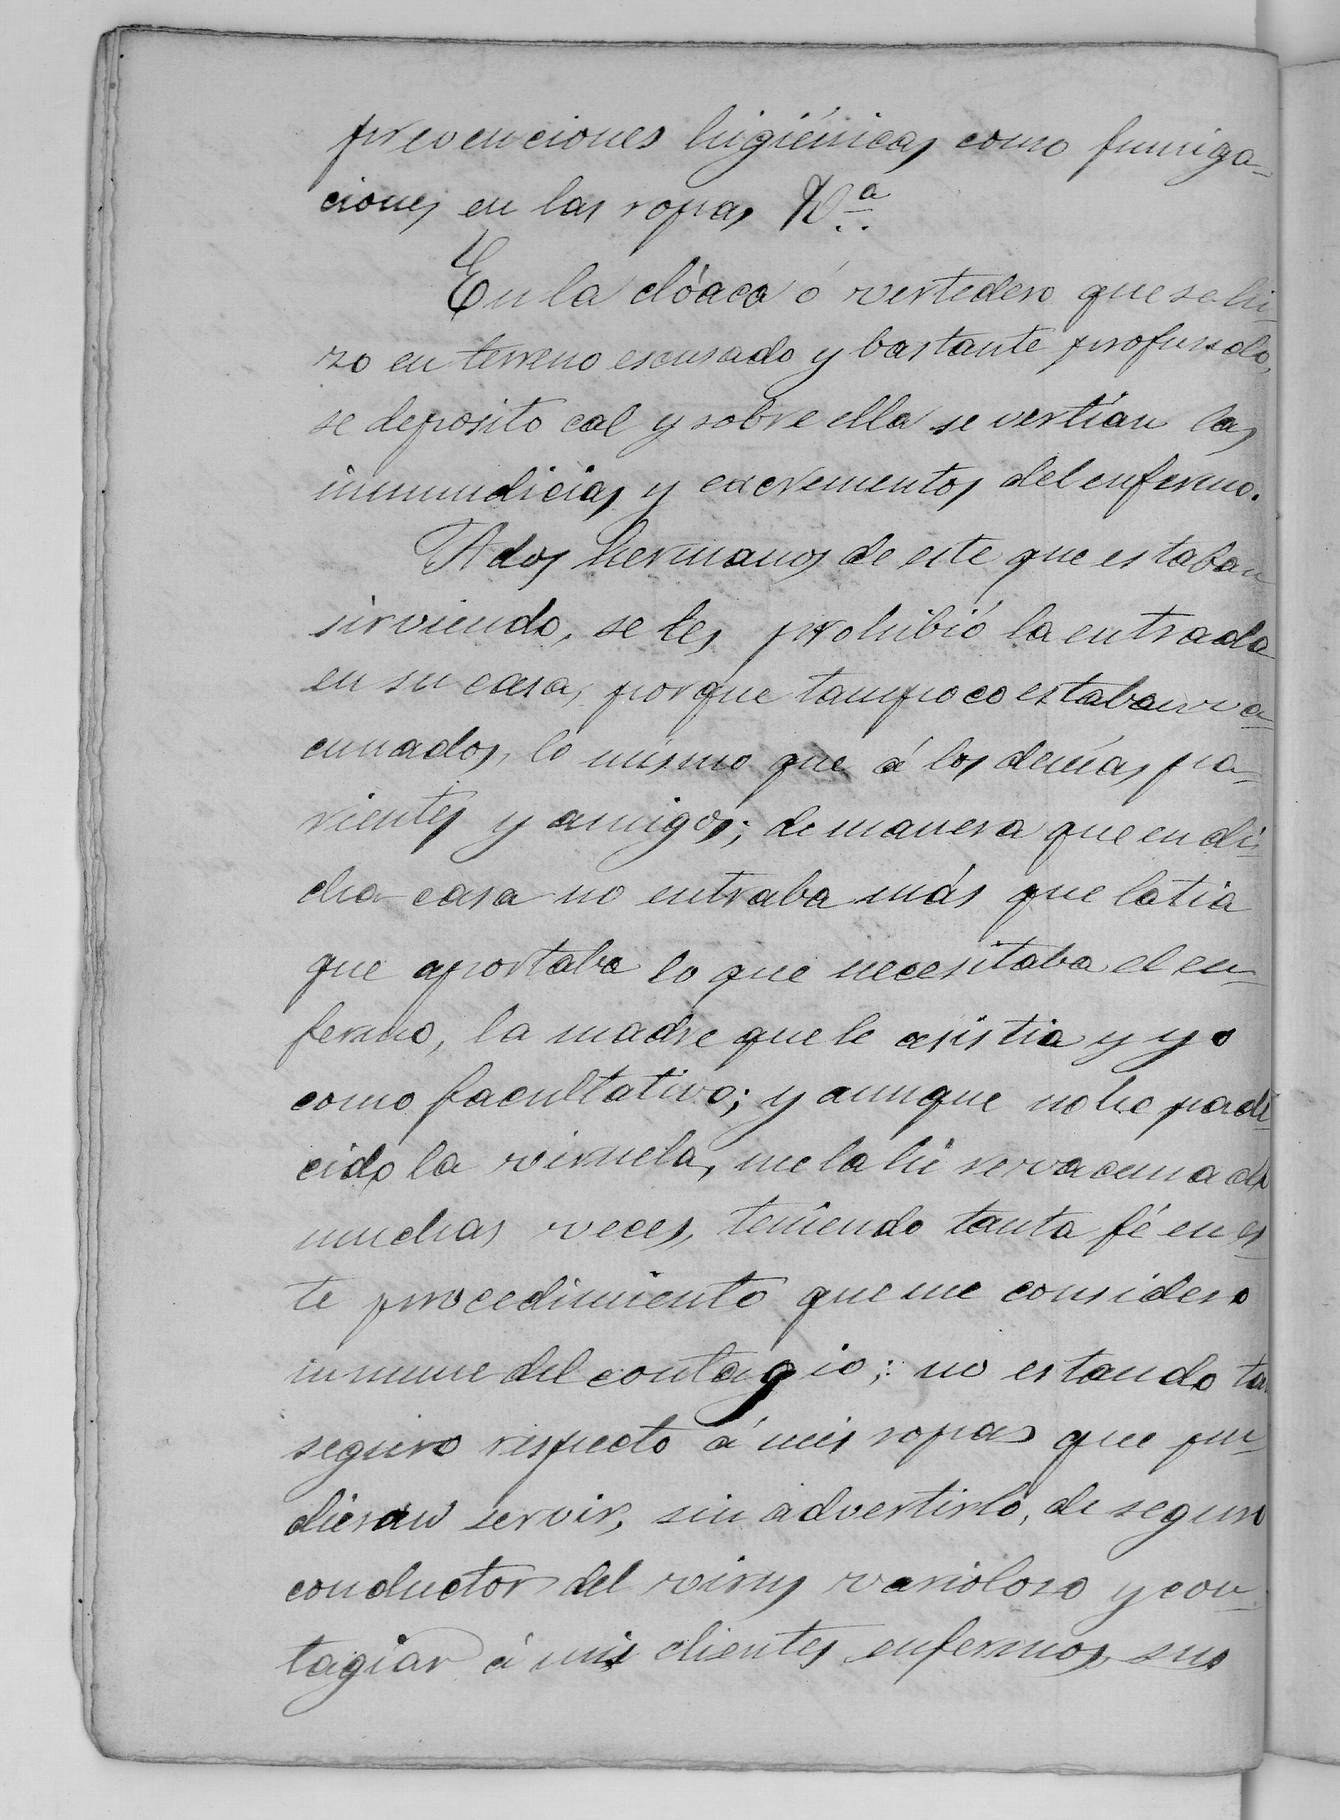 prevenciones higiénicas como fumiga-
ciones en las ropas &ª
En la clóaca ó vertedero que se hi-
zo en terreno escusado y bastante profundo,
se deposito cal y sobre ella se vertían las
inmundicias y excrementos del enfermo.
A dos hermanos de este que estaban
sirviendo, se les prohibió la entrada
en su casa, porque tampoco estaban va-
cunados, lo mismo que á los demás pa-
rientes y amigos; de manera que en di-
cha casa no entraba más que la tia
que aportaba lo que necesitaba el en-
fermo, la madre que le asistia y yo
como facultativo; y aunque no he pade-
cido la viruela, me la hé revacunado
muchas veces, teniendo tanta fé en es-
te procedimiento que me considero
inmune del contagio; no estando tan
seguro respecto á mis ropas que pu-
dieran servir, sin advertirlo, de seguro
conductor del virus varioloso y con-
tagiar á mis clientes enfermos, sus